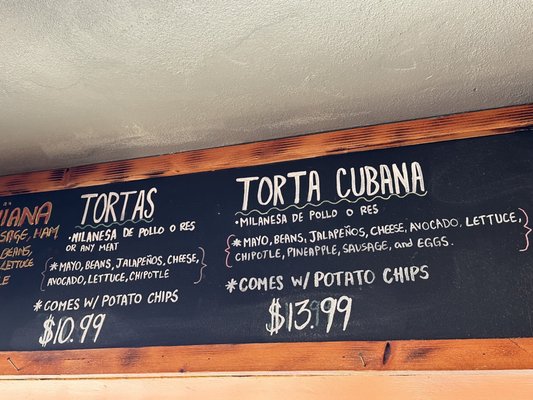 IANA
SAUSAGE, HAM
BEANS,
LETTUCE
TORTAS
•MILANESA DE POLLO O RES
OR ANY MEAT
*MAYO, BEANS, JALAPEÑOS, CHEESE,
AVOCADO, LETTUCE, CHIPOTLE
*COMES W/ POTATO CHIPS
$10.99
TORTA CUBANA
•MILANESA DE POLLO O RES
*MAYO, BEANS, JALAPEÑOS, CHEESE, AVOCADO, LETTUCE,
CHIPOTLE, PINEAPPLE, SAUSAGE, and EGGS.
*COMES W/ POTATO CHIPS
$13.99